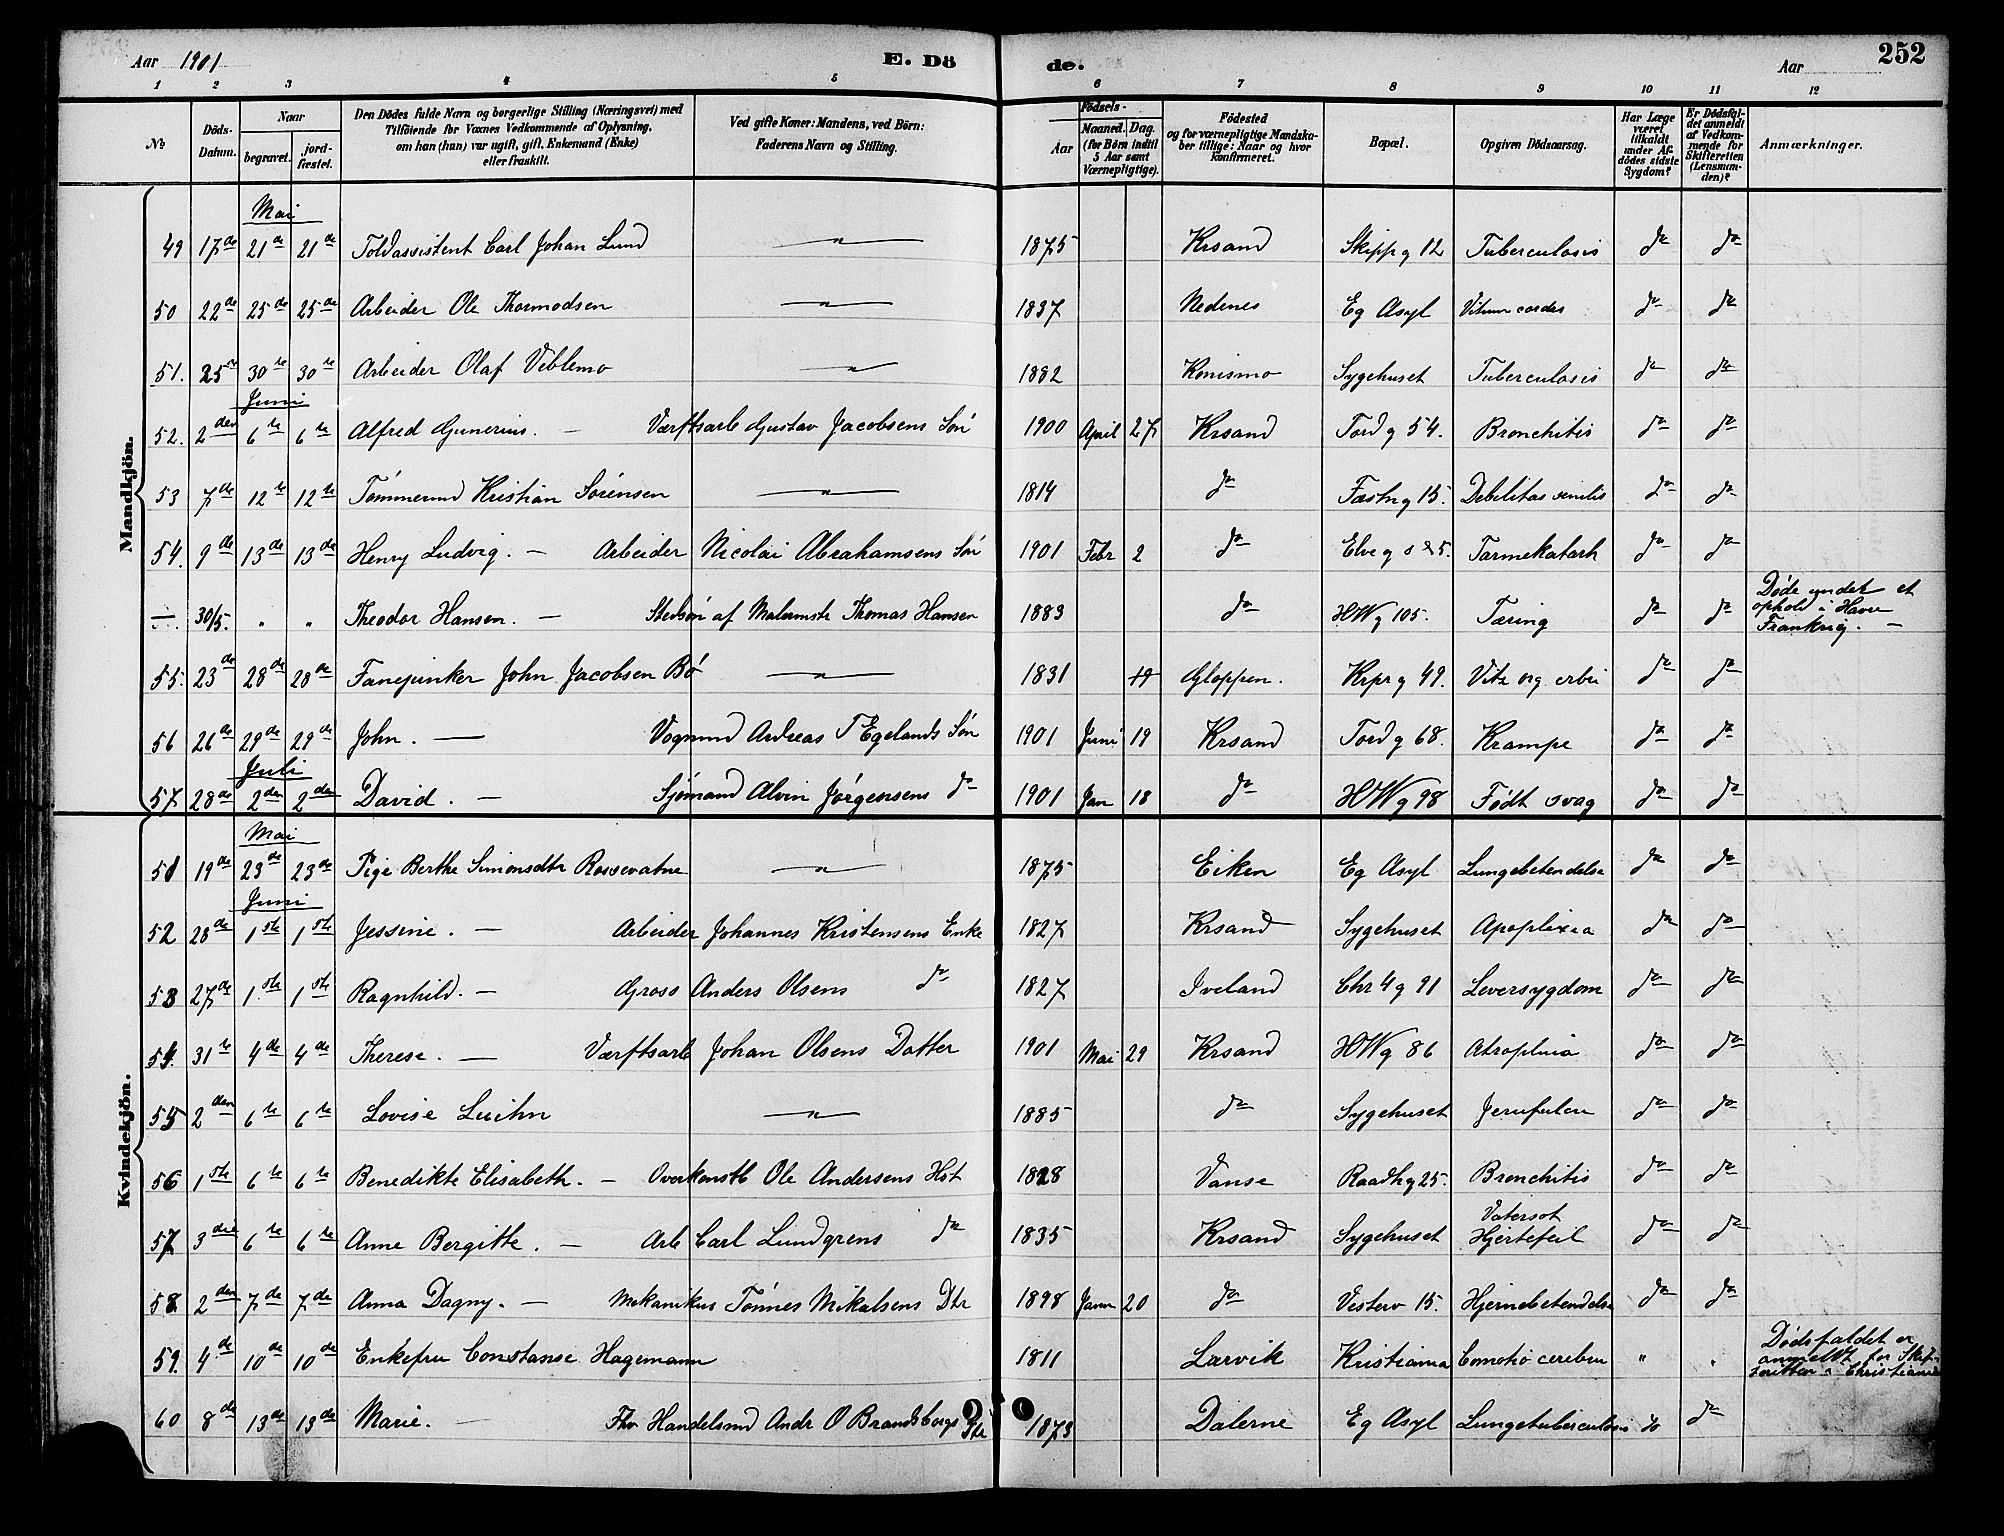 Aar 1901 E. Dö de. Aar 252
1 2 3 4 5 6 7 8 9 10 11 12
№ Döds-Datum. Naar begravet. jordfæstet. Den Dödes fulde Navn og borgerlige Stilling (Næringsvei) med Tilföiende for Voxnes Vedkommende af Oplysning, om han (hun) var ugift, gift, Enkemand (Enke) eller fraskilt. Ved gifte Koner: Mandens, ved Börn: Faderens Navn og Stilling. Födsels- Aar Maaned. Dag. (for Börn indtil 5 Aar samt Værnepligtige). Födested og for værnepligtige Mandskaber tillige: Naar og hvor konfirmeret. Bopæl. Opgiven Dödsaarsag. Har Læge været tilkaldt under Afdödes sidste Sygdom? Er Dödsfaldet anmeldt af Vedkommende for Skifteretten (Lensmanden)? Anmærkninger.
Mandkjön.
Mai
49 17de 21de 21de Toldassistent Carl Johan Lund — " — 1875 Krsand Skippg 12 Tuberculosis Ja Ja
50 22de 25de 25de Arbeider Ole Thormodsen — " — 1837 Nedenes Eg Asyl Vitium cordis Ja Ja
51. 25de 30te 30te Arbeider Olaf Veblemo — " — 1882 Konismo Sygehuset Tuberculosis Ja Ja
Juni
52. 2den 6te 6te Alfred Gunerius. — Værftsarb Gustav Jacobsens Søn 1900 April 27 Krsand Tordg 54. Bronchitis Ja Ja
53 7de 12te 12te Tømmermd Kristian Sørensen — " — 1814 do Fæstng 15. Debilitas senilis Ja Ja
54. 9de 13de 13de Henry Ludvig. — Arbeider Nicolai Abrahamsens Søn 1901 Febr 2 do Elveg 5. Tarmekatarh Ja Ja
— 30/5. " " Theodor Hansen. — Stedsøn af Malermstr Thomas Hansen 1883 do HWg 105. Tæring Ja Ja Døde under et ophold i Havre Frankrig. —
55. 23de 28de 28de Fanejunker John Jacobsen Bø — " — 1831 Gloppen. Krprg 49. Vitz org. Ja Ja
56 26de 29de 29de John. — Vognmd Andreas T Egelands Søn 1901 Juni 19 Krsand Tordg 68. Krampe Ja Ja
Juli
57 28de 2den 2den David. — Sjømand Alvin Jørgensens do 1901 Jan 18 do HWg 98 Født svag Ja Ja
Kvindekjön.
Mai
51 19de 23de 23de Pige Berthe Simonsdtr Rossevatne — " — 1875 Eiken Eg Asyl Lungebetendelse Ja Ja
Juni
52 28de 1ste 1ste Jessine. — Arbeider Johannes Kristensens Enke 1827 Krsand Sygehuset Apoplexia Ja Ja
53 27de 1ste 1ste Ragnhild. — Gross Anders Olsens do 1827 Iveland Chr 4 g 91 Leversygdom Ja Ja
54. 31te 4de 4de Therese. — Værftsarb Johan Olsens Datter 1901 Mai 29 Krsand HWg 86 Atrophia Ja Ja
55 2den 6te 6te Lovise — " — 1885 do Sygehuset Ja Ja
56 1ste 6te 6te Benedikte Elisabeth. — Overkonstb Ole Andersens Hst 1828 Vanse Raadhg 25. Bronchitis Ja Ja
57 3die 6te 6te Anne Bergitte. — Arb Carl Lundgrens do 1835 Krsand Sygehuset Vatersot Hjertefeil Ja Ja
58. 2den 7de 7de Anna Dagny. — Mekanikus Tønnes Mikalsens Dtr 1898 Janr 20 do Vesterv 15. Hjernebetendelse Ja Ja
59. 4de 10de 10de Enkefru Constanse Hagemann 1811 Larvik Kristiania Comotio cerebri " " Dødsfaldet er anmeldt for Skifteretten i Christiania
60 8de 13de 13de Marie. — Fhv Handelsmd Andr O Brandsborgs Dtr 1873 Dalerne Eg Asyl Lungetuberculosis Ja Ja